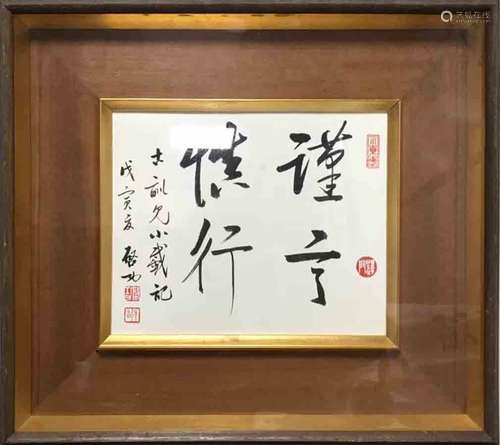 謹言
慎行
古訓見小戴記
戊寅夏 啓功